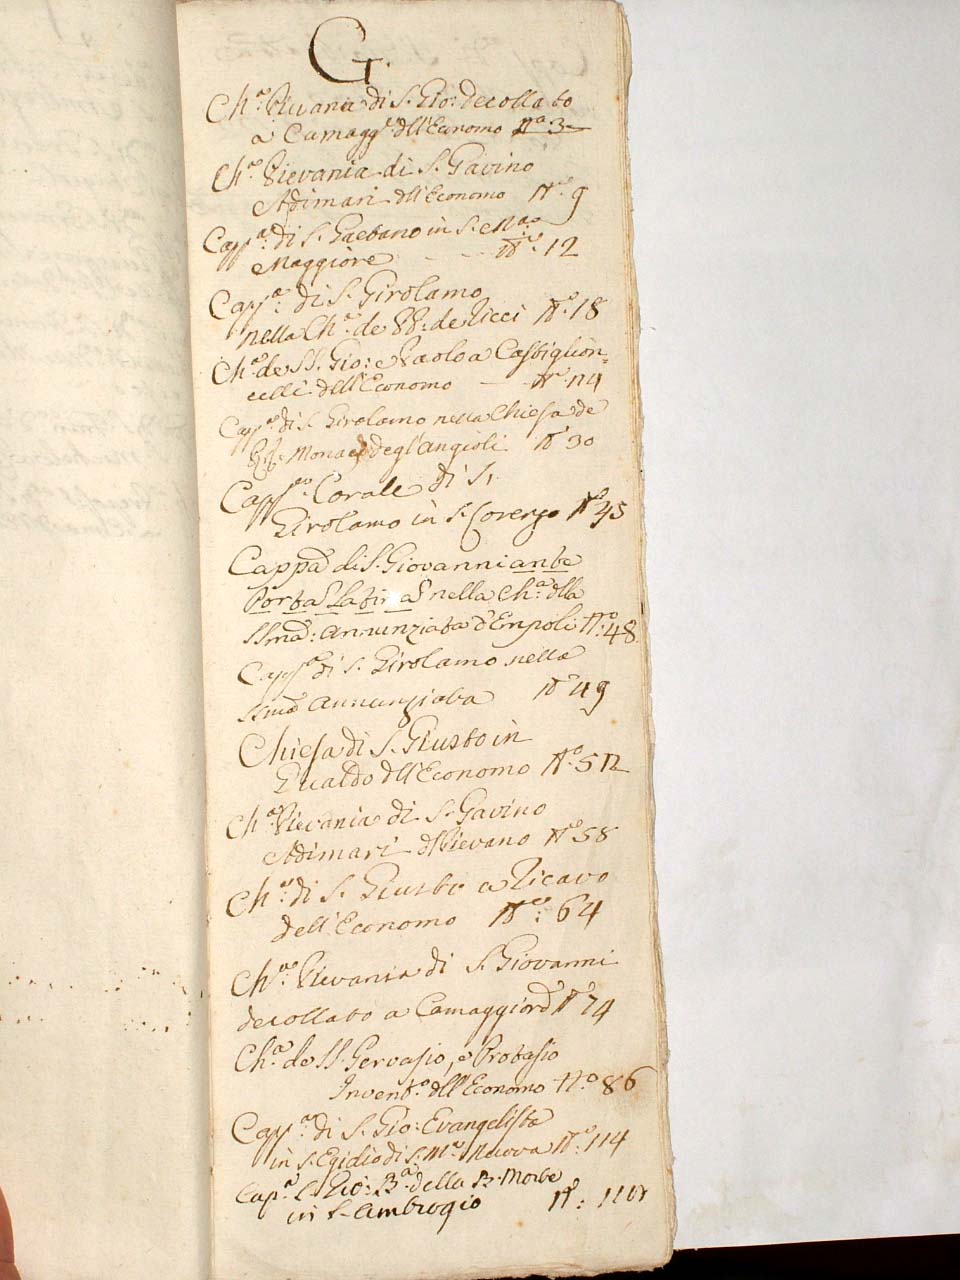 G.
Ch.ª Pievania di S. Gio: decollato
a Camagg.e dll'Economo N.º 3
Ch.ª Pievania di S. Gavino
Adimari dll'Economo N.º 9
Capp.ª di S. Gaetano in S. Ma.
Maggiore N.º 12
Capp.ª di S. Girolamo
nella Ch.ª de PP: de Ricci N.º 18
Ch.ª de SS. Gio: e Paolo a Castiglion-
celli dell'Economo N.º
Capp.ª di S. Girolamo nella Chiesa de
Monaci degl'Angioli N.º 30
Capp.ª Corale di S.
Girolamo in S. Lorenzo N.º 45
Capp.ª di S. Giovanni ante
Porta Latina nella Ch.ª dlla
SSma: Annunziata d'Empoli N.º 48
Capp.ª di S. Girolamo nella
SSma Annunziata N.º 49
Chiesa di S. Giusto in
Gualdo dll'Economo N.º 52
Ch.ª Pievania di S. Gavino
Adimari dl Pievano N.º 58
Ch.ª di S. Giusto a Ricavo
dell'Economo N.º 64
Ch.ª Pievania di S. Giovanni
decollato a Camaggiore N.º 74
Ch.ª de SS. Gervasio, e Protasio
Invent.º dll'Economo N.º 86
Capp.ª di S. Gio: Evangelista
in S. Egidio di S. M.ª Nuova N.º 114
Cap.ª S. Gio: B.ª della B. Morte
in S. Ambrogio N.º: